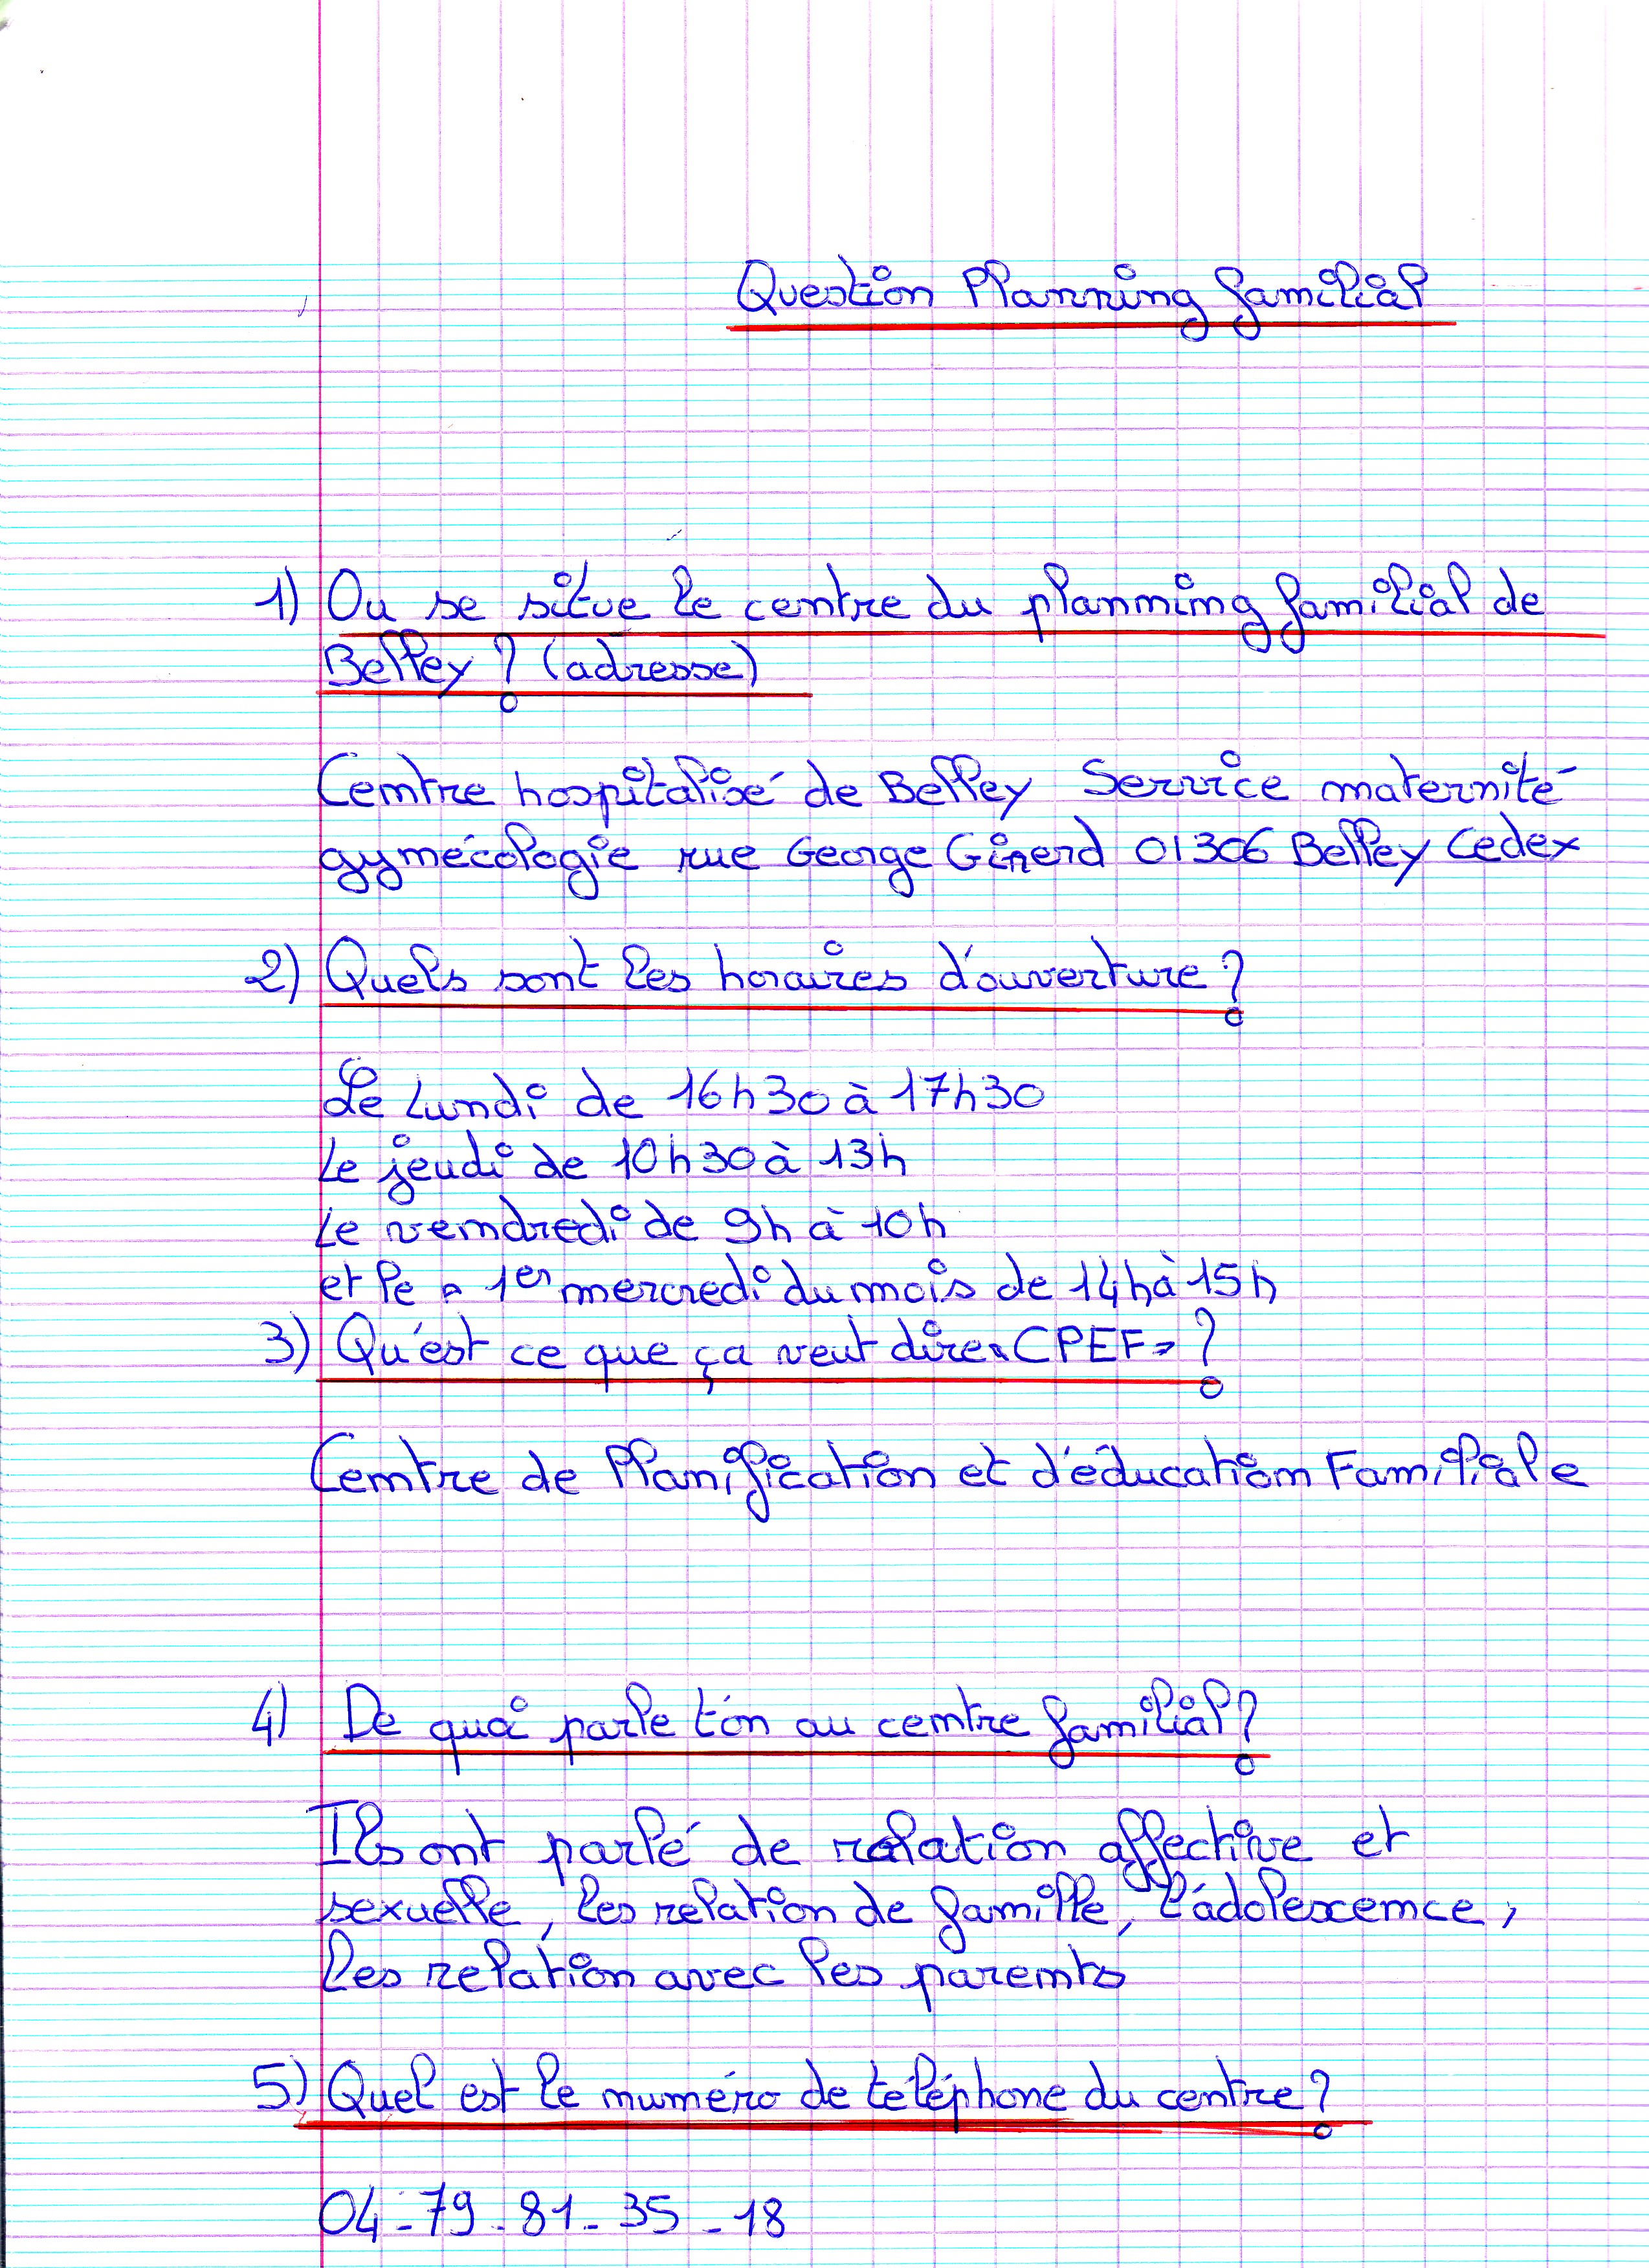 Question Planning familial
1) Ou se situe le centre du planning familial de
Belley ? (adresse)
Centre hospitalisé de Belley Service maternité
gynécologie rue George Girerd 01306 Belley Cedex
2) Quels sont les horaires d'ouverture ?
Le Lundi de 16h30 à 17h30
Le jeudi de 10h30 à 13h
Le vendredi de 9h à 10h
et le 1er mercredi du mois de 14h à 15h
3) Qu'est ce que ça veut dire "CPEF" ?
Centre de Planification et d'éducation Familiale
4) De quoi parle t'on au centre familial ?
Ils ont parlé de relation affective et
sexuelle, les relation de famille, l'adolexence,
les relation avec les parents
5) Quel est le numéro de téléphone du centre ?
04-79-81-35-18